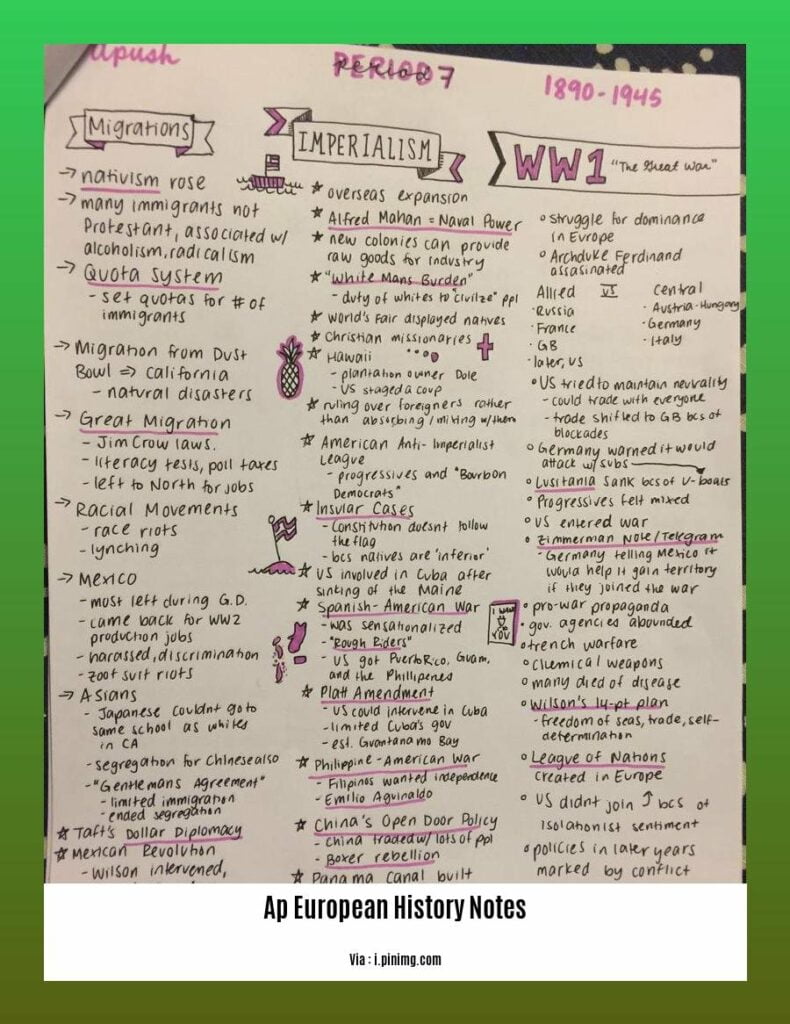 apush
PERIOD 7
period
1890-1945
Migrations
→ nativism rose
→ many immigrants not
Protestant, associated w/
alcoholism, radicalism
→ Quota System
- set quotas for # of
immigrants
→ Migration from Dust
Bowl ⇒ California
- natural disasters
→ Great Migration
- Jim Crow laws.
- literacy tests, poll taxes
- left to North for jobs
→ Racial Movements
- race riots
- lynching
→ Mexico
- most left during G.D.
- came back for WW2
production jobs
- harassed, discrimination
- zoot suit riots
→ Asians
- Japanese couldnt go to
same school as whites
in CA
- segregation for Chinese also
- "Gentlemans Agreement"
- limited immigration
- ended segregation
☆ Taft's Dollar Diplomacy
☆ Mexican Revolution
- Wilson intervened,
IMPERIALISM
★ overseas expansion
★ Alfred Mahan = Naval Power
★ new colonies can provide
raw goods for industry
★ "White Mans Burden"
- duty of whites to "civilze" ppl
★ World's Fair displayed natives
★ Christian missionaries
★ Hawaii
- plantation owner Dole
- US staged a coup
★ ruling over foreigners rather
than absorbing / mixing w/ them
☆ American Anti-Imperialist
League
- progressives and "Bourbon
Democrats"
★ Insular Cases
- Constitution doesnt follow
the flag
- bcs natives are 'inferior'
☆ US involved in Cuba after
sinking of the Maine
★ Spanish-American War
- was sensationalized
- "Rough Riders"
- US got Puerto Rico, Guam,
and the Phillipenes
★ Platt Amendment
- US could intervene in Cuba
- limited Cuba's gov
- est. Guantanamo Bay
☆ Philippine-American War
- Filipinos wanted independence
- Emilio Aguinaldo
☆ China's Open Door Policy
- China traded w/ lots of ppl
- Boxer rebellion
★ Panama Canal built
WW1 "The Great War"
○ struggle for dominance
in Europe
○ Archduke Ferdinand
assasinated
Allied VS Central
· Russia
· France
· GB
· later, US
· Austria-Hungary
· Germany
· Italy
○ US tried to maintain neutrality
- could trade with everyone
- trade shifted to GB bcs of
blockades
○ Germany warned it would
attack w/ subs
○ Lusitania sank bcs of U-boats
○ Progressives felt mixed
○ US entered war
○ Zimmerman Note/Telegram
- Germany telling Mexico it
would help it gain territory
if they joined the war
I want
YOU
○ pro-war propaganda
• gov. agencies abounded
○ trench warfare
○ chemical weapons
○ many died of disease
○ Wilson's 14-pt plan
- freedom of seas, trade, self-
determination
○ League of Nations
created in Europe
○ US didnt join ↑ bcs of
isolationist sentiment
○ policies in later years
marked by conflict
Ap European History Notes
Via : i.pinimg.com